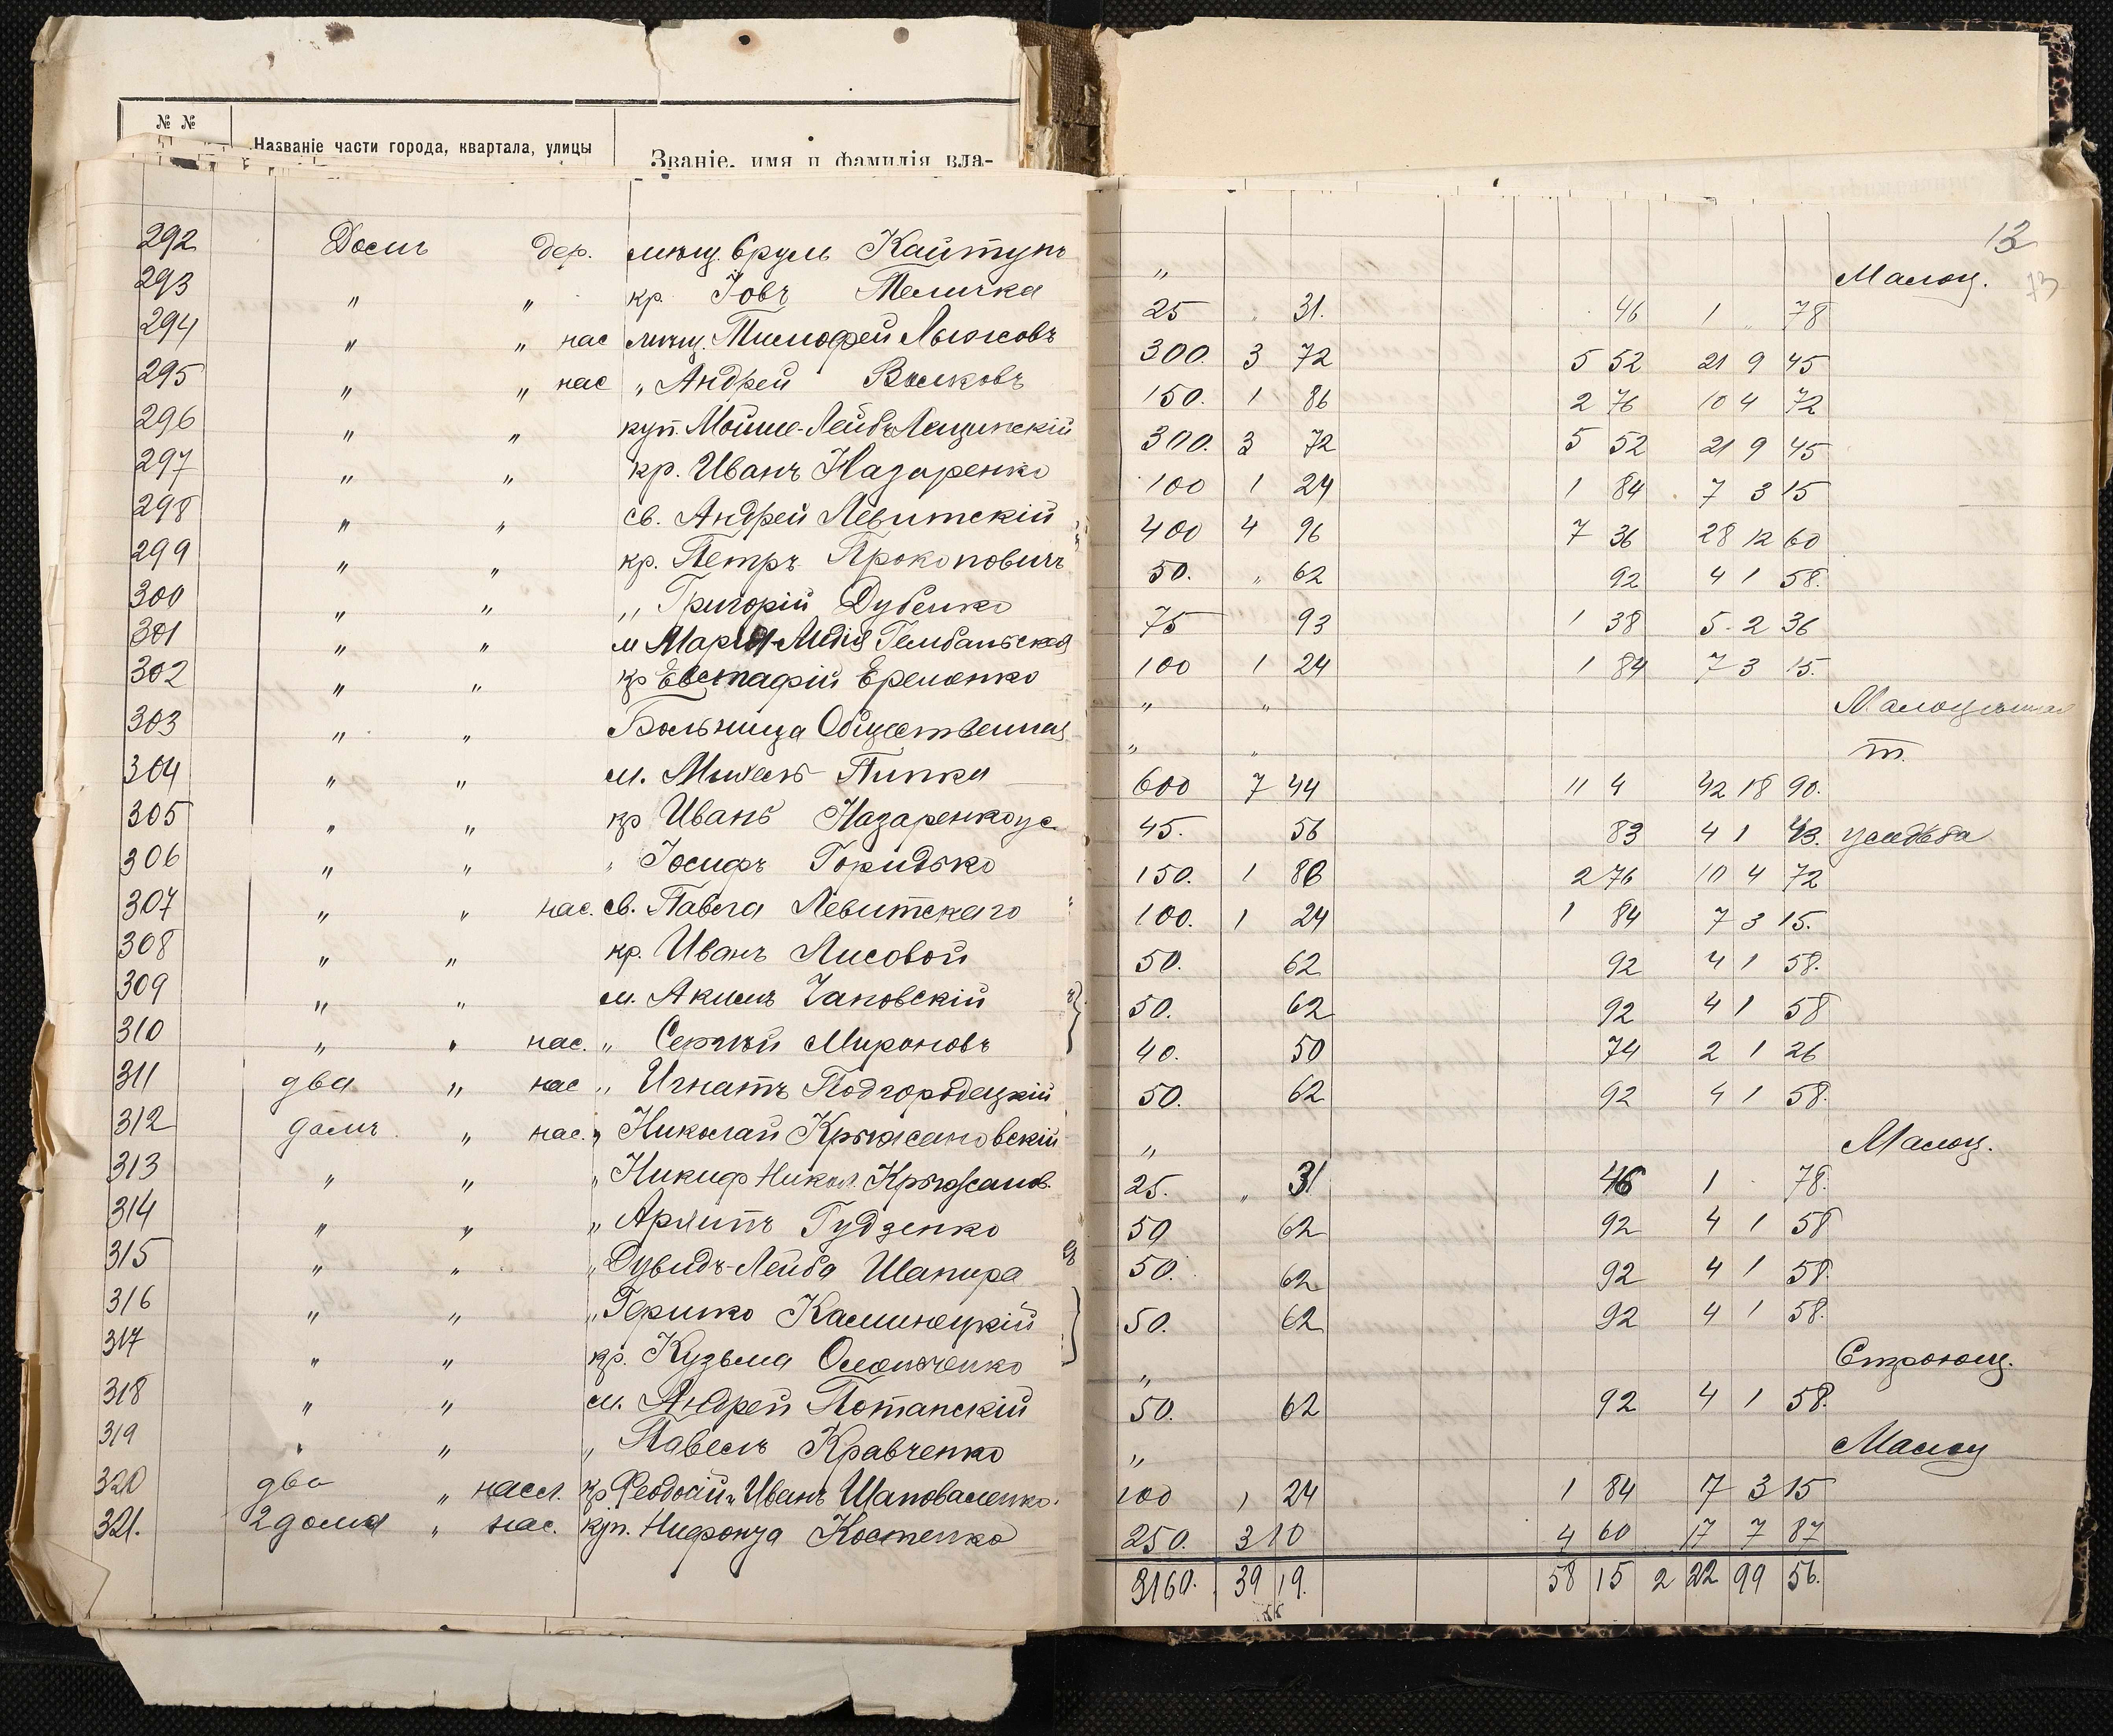 № №
Названіе части города, квартала, улицы
Званіе, имя и фамилія вла-
13
292 Домъ дер. мѣщ. Сруль Кайтунъ " Малоц.
293 " " кр. Іовъ Теличка 25 " 31. 46 1 " 78
294 " " нас мѣщ. Тимофей Лыжовъ 300. 3 72 5 52 21 9 45
295 " " нас " Андрей Волковъ 150. 1 86 2 76 10 4 72
296 " " куп. Мойше-Лейбъ Лещинскій 300. 3 72 5 52 21 9 45
297 " " кр. Иванъ Назаренко 100 1 24 1 84 7 3 15
298 " " св. Андрей Левитскій 400 4 96 7 36 28 12 60
299 " " кр. Петръ Прокоповичъ 50. " 62 92 4 1 58.
300 " " " Григорій Дубенко 75 93 1 38 5 2 36
301 " " м Марія-Лидія 100 1 24 1 84 7 3 15.
302 " " кр Евстафій Еременко " " Малоцѣнная
303 " " Больница Общественная " " т.
304 " " м. Михель Пинка 600 7 44 11 4 42 18 90.
305 " " кр Иванъ Назаренко ус 45. 56 83 4 1 43. усадьба
306 " " " Іосифъ Горидько 150. 1 86 2 76 10 4 72
307 " " нас. св. Павла Левитскаго 100. 1 24 1 84 7 3 15.
308 " " кр. Иванъ Лисовой 50. 62 92 4 1 58.
309 " " м. Акимъ Чаповскій 50. 62 92 4 1 58
310 " " нас. " Сергѣй Мироновъ 40. 50 74 2 1 26
311 два " нас " Игнатъ Подгородецкій 50. 62 92 4 1 58.
312 домъ " нас. " Николай Крыжановскій " Малоц.
313 " " " Никиф Никол. Крыжанов. 25. " 31 46 1 78.
314 " " " Архипъ Гудзенко 50 62 92 4 1 58
315 " " " Дувидъ-Лейба Шапира 50. 62 92 4 1 58.
316 " " " Гершко Каминецкій 50. 62 92 4 1 58.
317 " " кр. Кузьма " Строющ.
318 " " м. Андрей Потапскій 50. 62 92 4 1 58.
319 " " " Павелъ Кравченко " Малоц
320 два " насл. кр Феодосій и Иванъ Шаповаленко. 100 1 24 1 84 7 3 15
321. 2 дома " нас. куп. Нифонта Костенко 250. 3 10 4 60 17 7 87
3160. 39 19. 58 15 2 22 99 56.